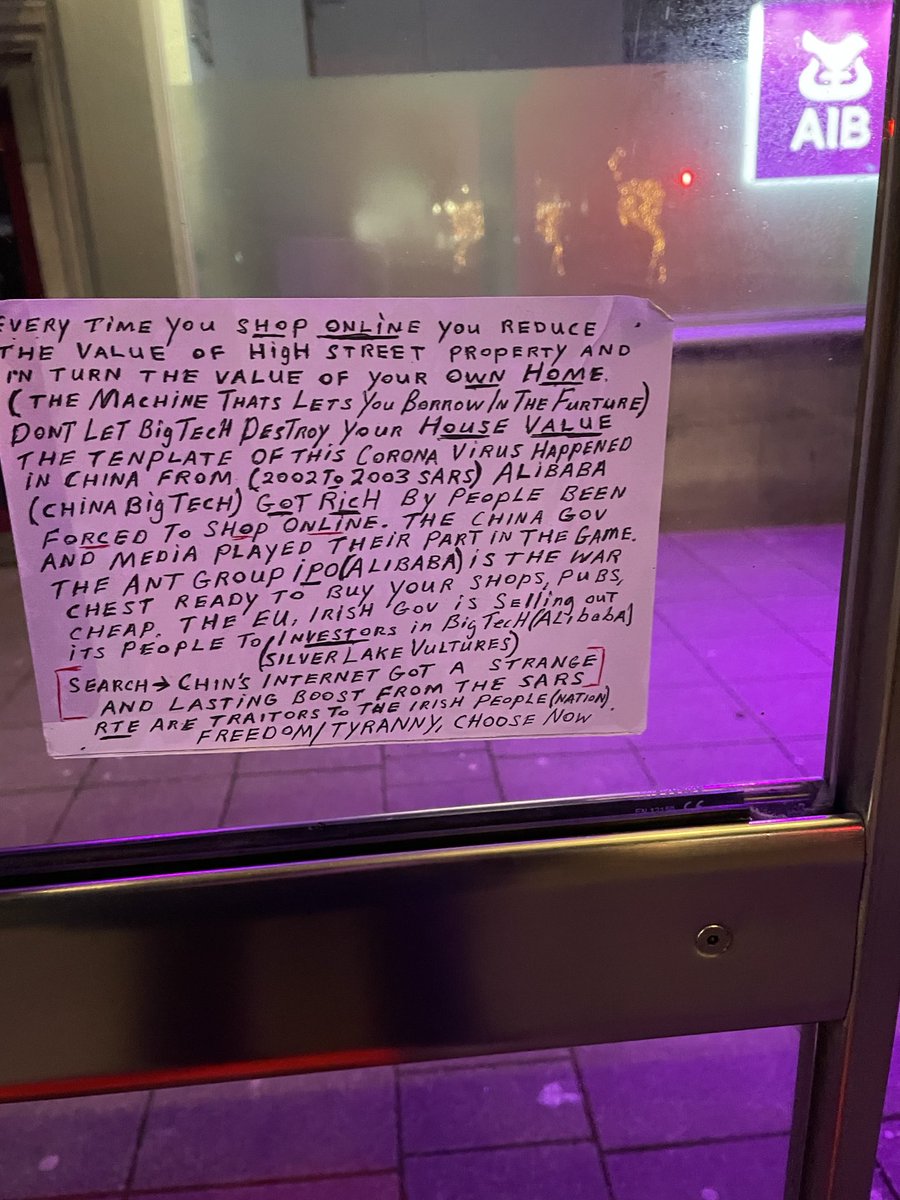 AIB
EVERY TIME YOU SHOP ONLINE YOU REDUCE
THE VALUE OF HIGH STREET PROPERTY AND
IN TURN THE VALUE OF YOUR OWN HOME.
(THE MACHINE THATS LETS YOU BORROW IN THE FURTURE)
DONT LET BIGTECH DESTROY YOUR HOUSE VALUE
THE TENPLATE OF THIS CORONA VIRUS HAPPENED
IN CHINA FROM (2002 TO 2003 SARS) ALIBABA
(CHINA BIGTECH) GOT RICH BY PEOPLE BEEN
FORCED TO SHOP ONLINE. THE CHINA GOV
AND MEDIA PLAYED THEIR PART IN THE GAME.
THE ANT GROUP IPO (ALIBABA) IS THE WAR
CHEST READY TO BUY YOUR SHOPS, PUBS,
CHEAP. THE EU, IRISH GOV IS SELLING OUT
ITS PEOPLE TO INVESTORS in BigTecH (ALibabA)
(SILVER LAKE VULTURES)
SEARCH → CHIN'S INTERNET GOT A STRANGE
AND LASTING BOOST FROM THE SARS
RTE ARE TRAITORS TO THE IRISH PEOPLE (NATION).
FREEDOM/TYRANNY, CHOOSE NOW